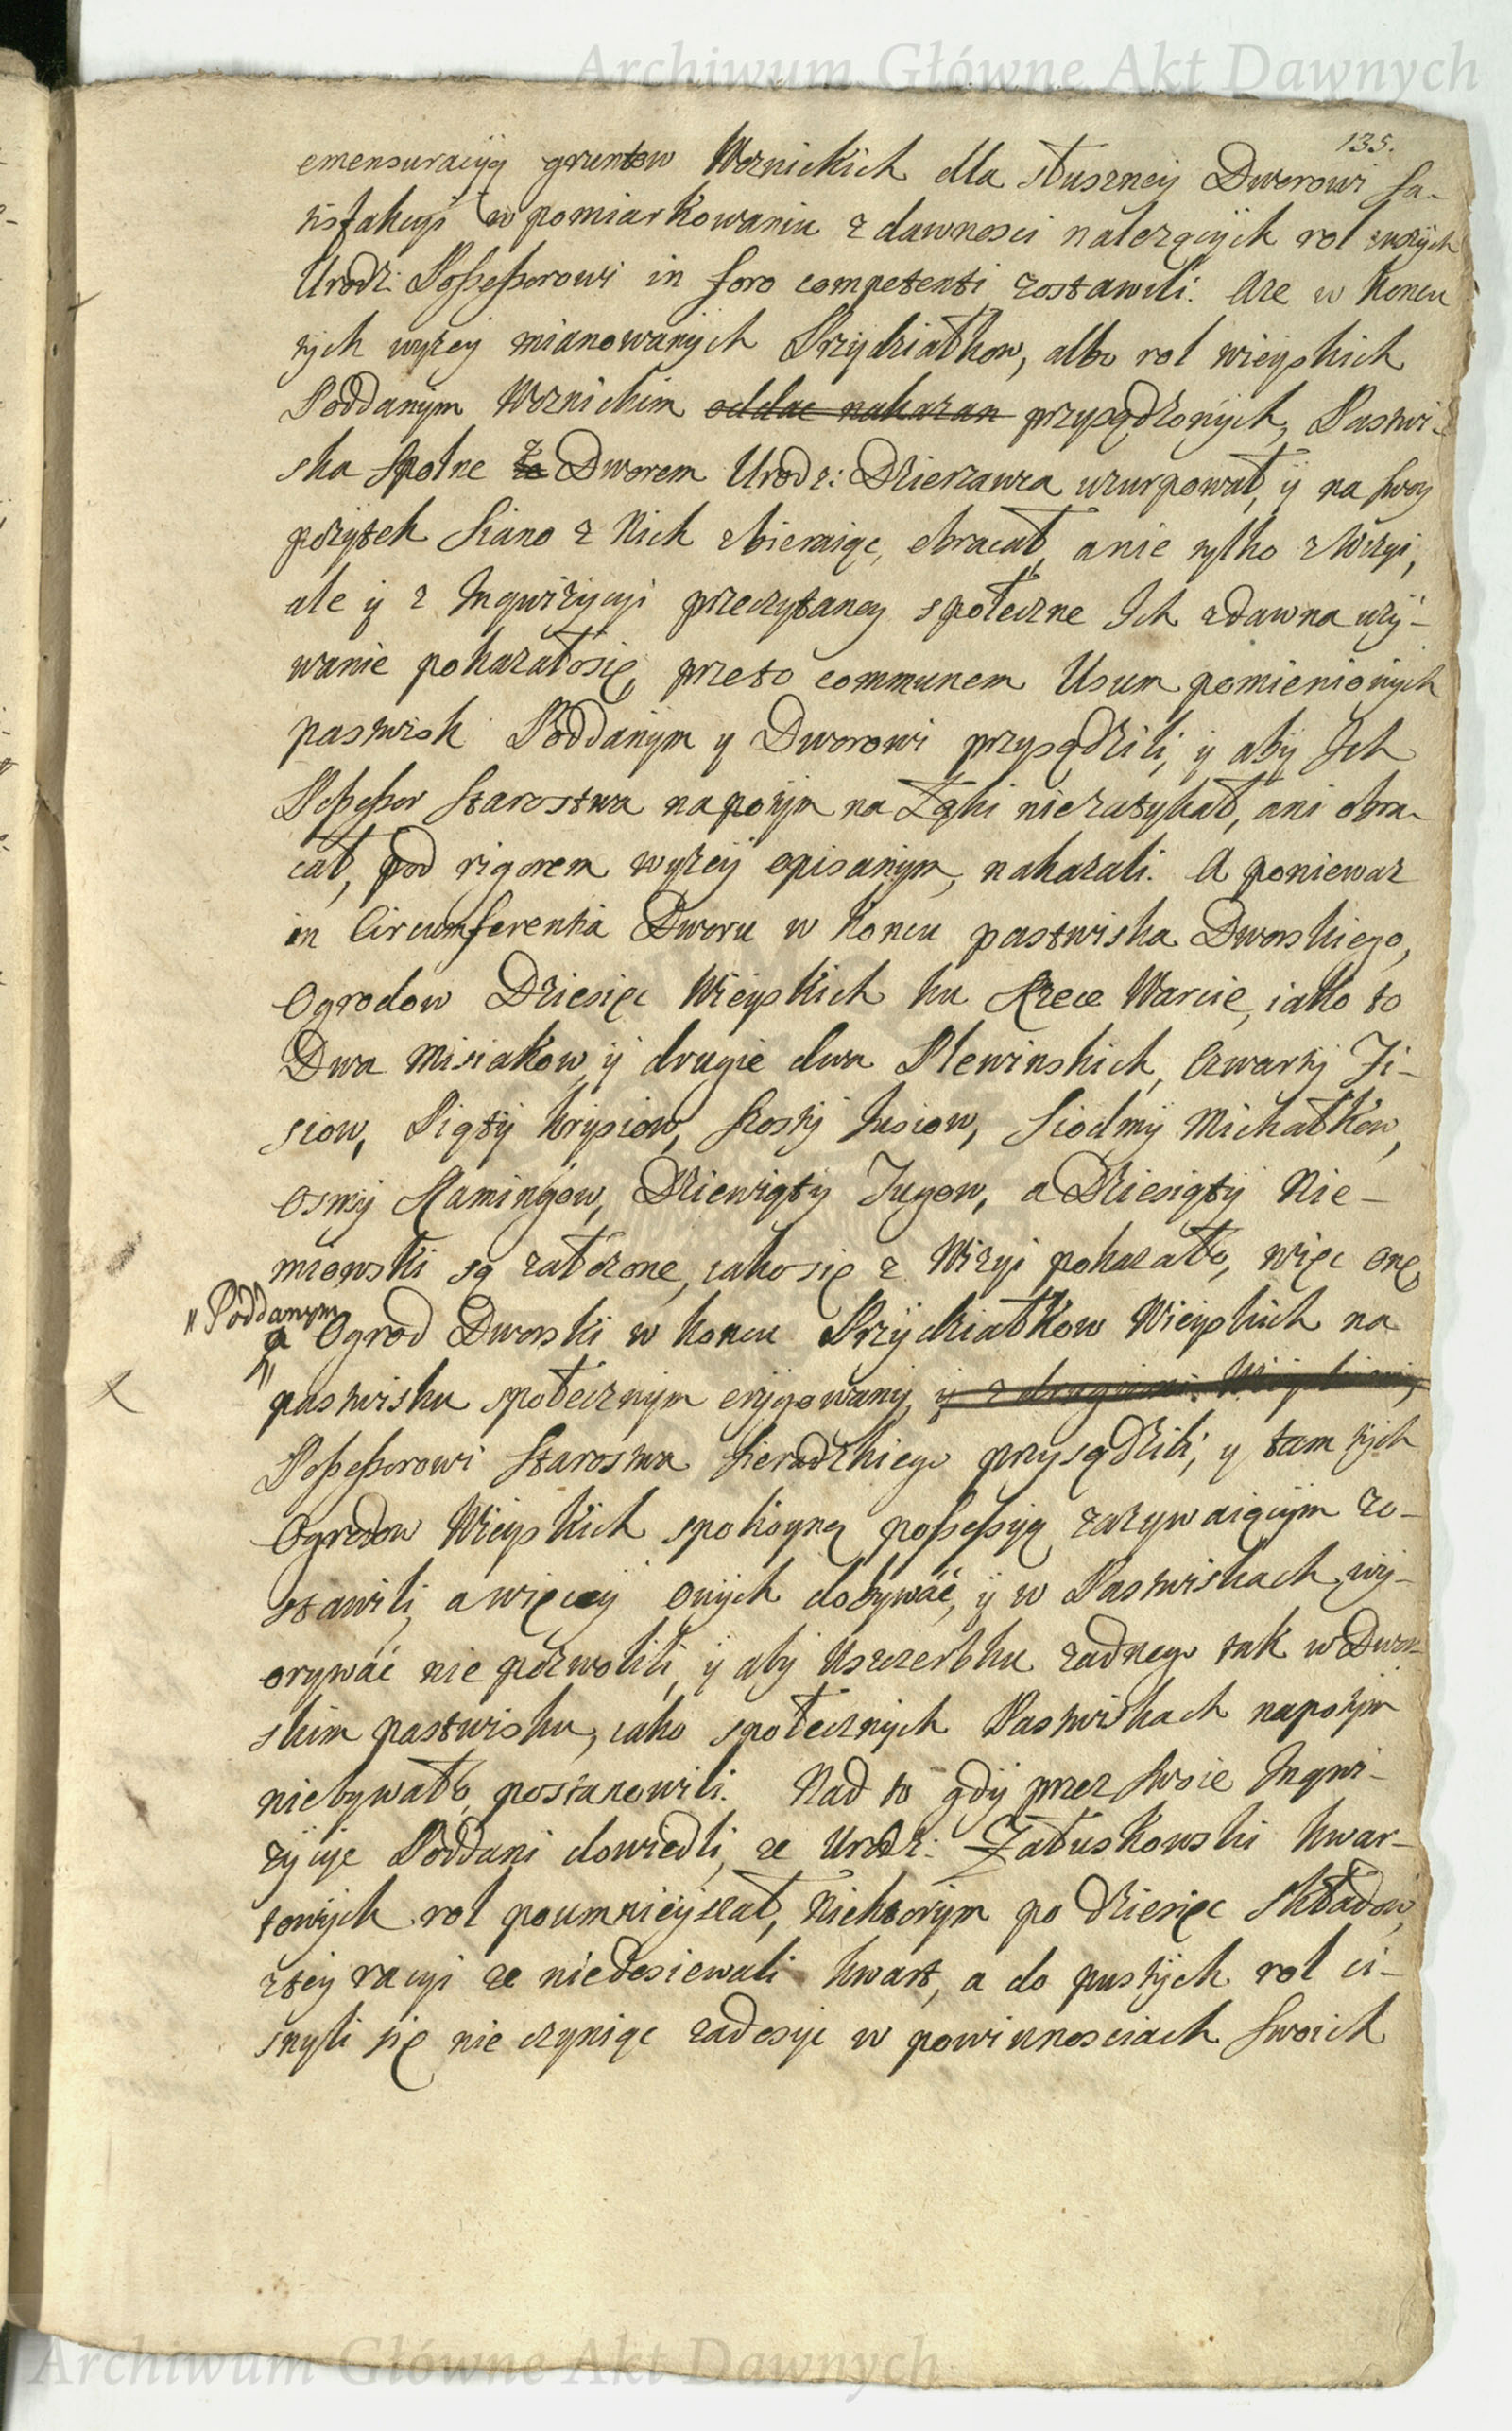 Archiwum Główne Akt Dawnych
135.
emensuracyą gruntow Woznickich dla słuszney Dworowi sa-
tisfakcyi w pomiarkowaniu z dawnosci należących rol tuszych
Urodz: Possessorowi in foro competenti zostawili. Aze w koncu
tych wyzey mianowanych Przydziałkow, albo rol wieyskich
Poddanym Woznickim oddac nakazan przysądzonych, Pastwi-
ska spolne ze z Dworem Urodz: Dzierzawca uzurpował, y na swoy
pozytek siano z Nich zbieraiąc, obracał, a nie tylko z Wizyi,
ale y z Inqwizycyi przeczytaney społeczne Ich zdawna uzy-
wanie pokazałosię, przeto communem Usum pomienionych
pastwisk Poddanym y Dworowi przysądzili, y aby Ich
Possessor Starostwa napotym na Łąki niezatykał, ani obra-
cał, pod rigorem wyzey opisanym, nakazali. A poniewaz
in Circumferentia Dworu w koncu pastwiska Dworskiego,
Ogrodow Dziesięc Wieyskich ku Rzece Warcie, iako to
Dwa Misiakow, y drugie dwa Plewinskich, Czwarty Ji-
siow, Piąty Krysiow, Szosty Jusiow, Siodmy Michałkow,
Osmy Kamingow, Dziewiąty Jugow, a Dziesiąty Nie-
miowski są załozone, iako się z Wizyi pokazało, więc one
" Poddanym
a Ogrod Dworski w koncu Przydziałkow Wieyskich na
pastwisku społecznym erygowany, y z drugiemi Wieyskiemi,
Possessorowi Starostwa Sieradzkiego przysądzili, y tam tych
Ogrodow Wieyskich spokoyną possessyą zazywaiącym zo-
stawili, a więcey onych dobywać, y w Pastwiskach wy-
orywać nie pozwolili, y aby Uszczerbku zadnego tak w Dwor-
skim pastwisku, iako społecznych Pastwiskach napotym
niebywało, postanowili. Nad to gdy przez swoie Inqwi-
zycye Poddani dowiedli, ze Urodz: Załuskowski kwar-
towych rol poumnieyszał, Niektorym po dziesięc Składow,
z tey racyi ze niedosiewali kwart, a do pustych rol ci-
snyli się nie czyniąc zadosyc w powinnosciach swoich
Archiwum Główne Akt Dawnych